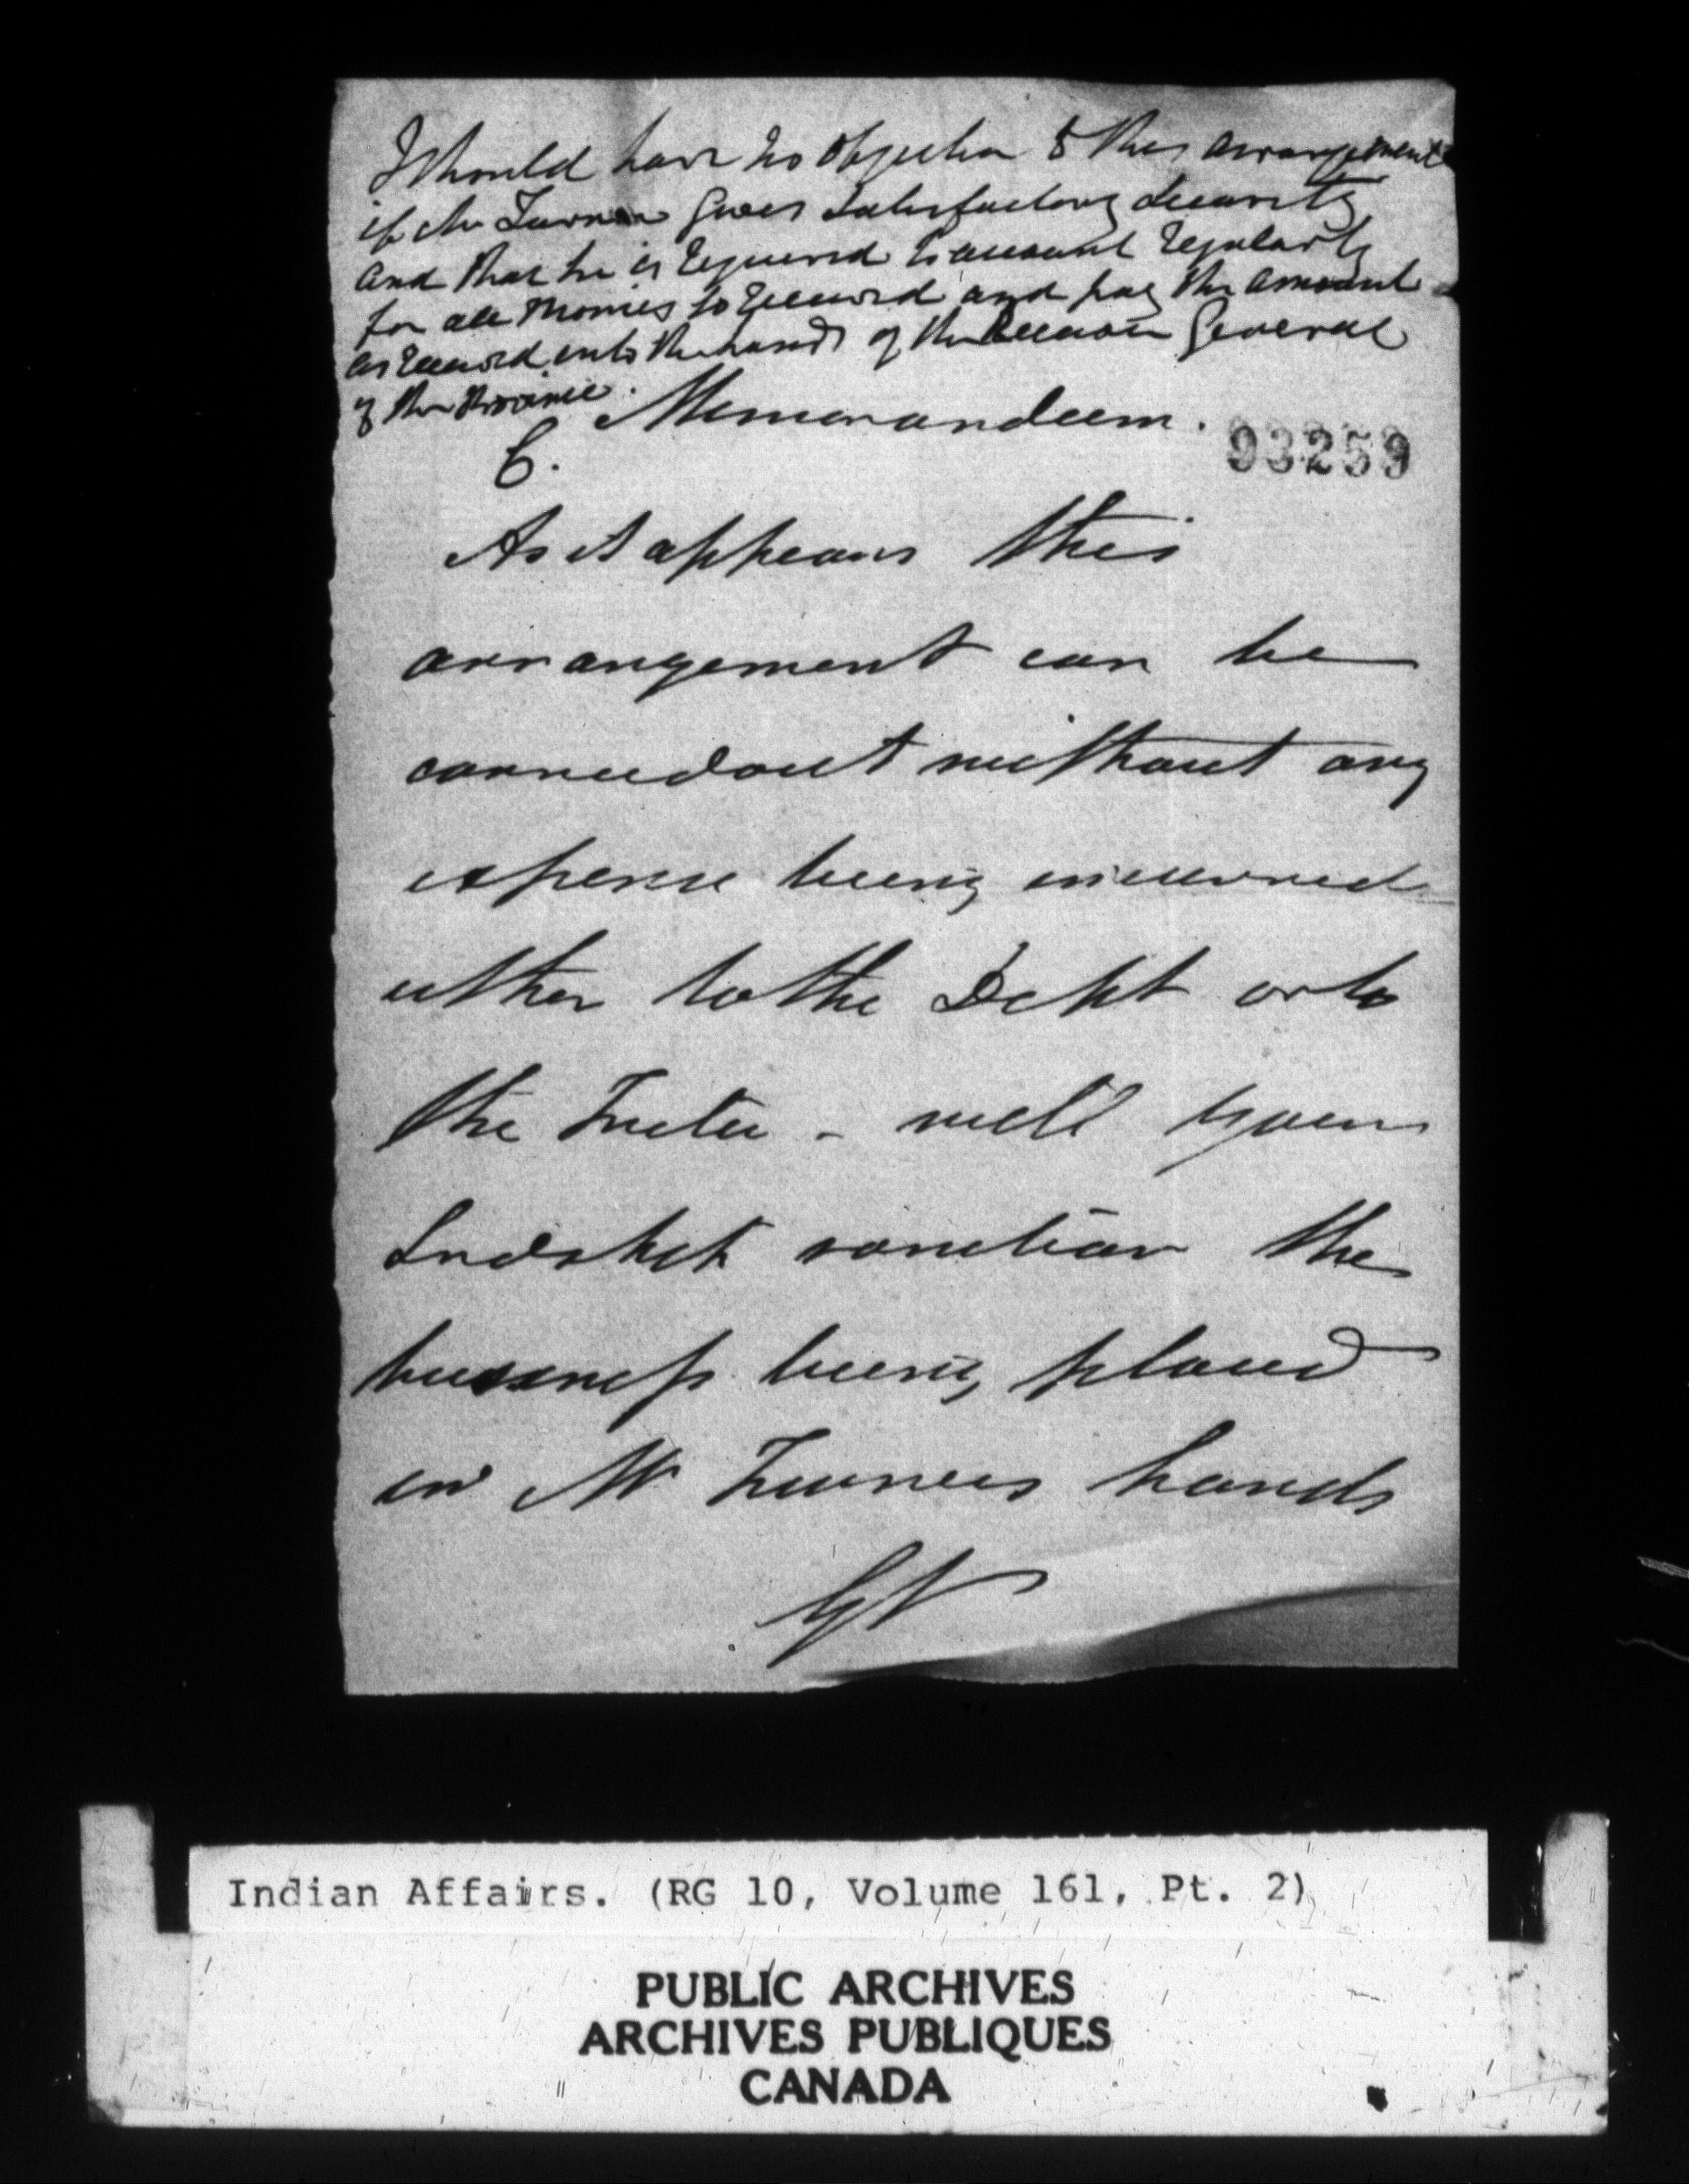 I should have no objection to this arrangement
if Mr Turner gives satisfactory security
and that he is required to account regularly
for all monies so received and pay the amount
as received into the hands of the Receiver General
of the Province.
E.
Memorandum.
93259
As it appears this
arrangement can be
carried out without any
expense being incurred
either to the Dept or to
the Tribe - will your
Lordship sanction the
business being placed
in Mr Turners hands
GV
Indian Affairs. (RG 10, Volume 161, Pt. 2)
PUBLIC ARCHIVES
ARCHIVES PUBLIQUES
CANADA